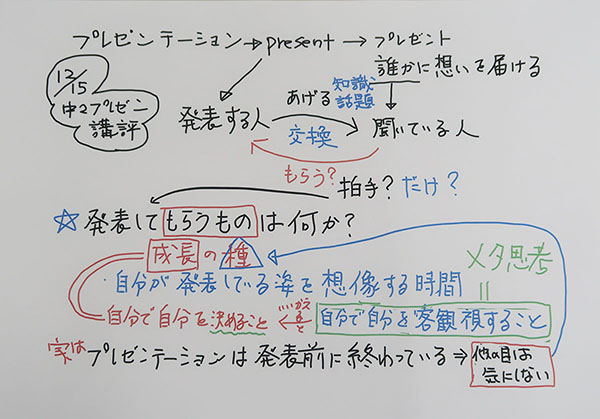 プレゼンテーション→present→プレゼント
誰かに想いを届ける
12/15
中2プレゼン
講評
知識
話題
発表する人
あげる
交換
聞いている人
もらう?
拍手?だけ?
☆発表してもらうものは何か?
成長の種
メタ思考
・自分が発表している姿を想像する時間
=
自分で自分を決めること
いいかえると
自分で自分を客観視すること
実はプレゼンテーションは発表前に終わっている⇒
他の目は
気にしない